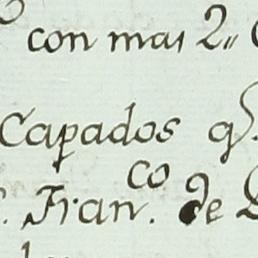 con mas 2,,
Capados q.
Fran.co de